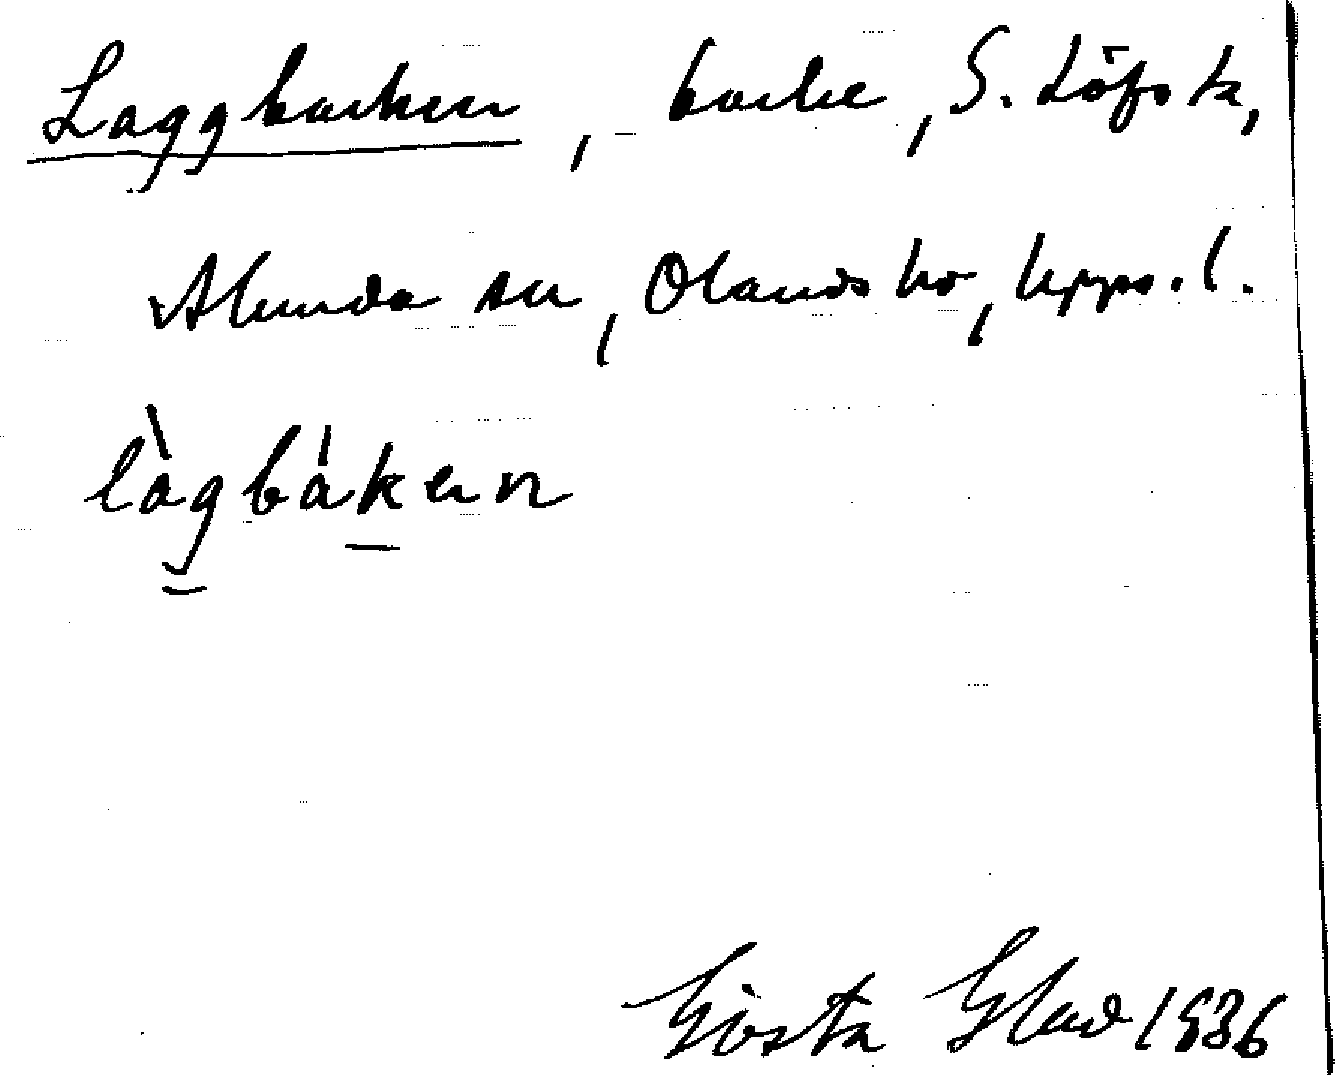 Laggbacken, backe, S. Löfsta,
Alunda sn, Olands hd, Upps. l.
làgbákɐn
Gösta Glad 1936